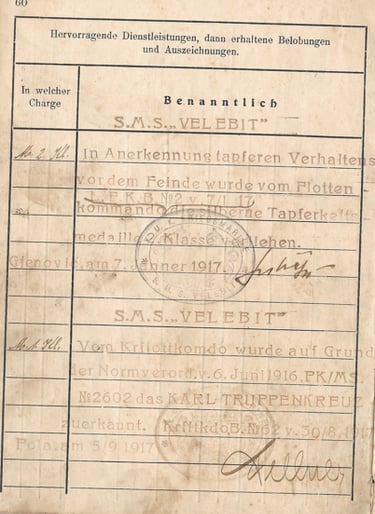 60
Hervorragende Dienstleistungen, dann erhaltene Belobungen
und Auszeichnungen.
In welcher
Charge
Benanntlich
S.M.S. „VELEBIT"
Mt. 2. Kl. In Anerkennung tapferen Verhaltens
vor dem Feinde wurde vom Flotten
F.K.B. №2 v. 7/1. 17
kommando die silberne Tapferkeits
medaille Klasse verliehen.
Gjenović, am 7. Jänner 1917.
S.M.S. „VELEBIT"
Mt. 1. Kl. Vom Krflottkomdo wurde auf Grund
der Normverord. v. 6. Juni 1916. PK/MS.
№2602 das KARL-TRUPPENKREUZ
zuerkannt. KrfltkdoB. №62 v. 30/8. 1917
Pola, am 5/9 1917